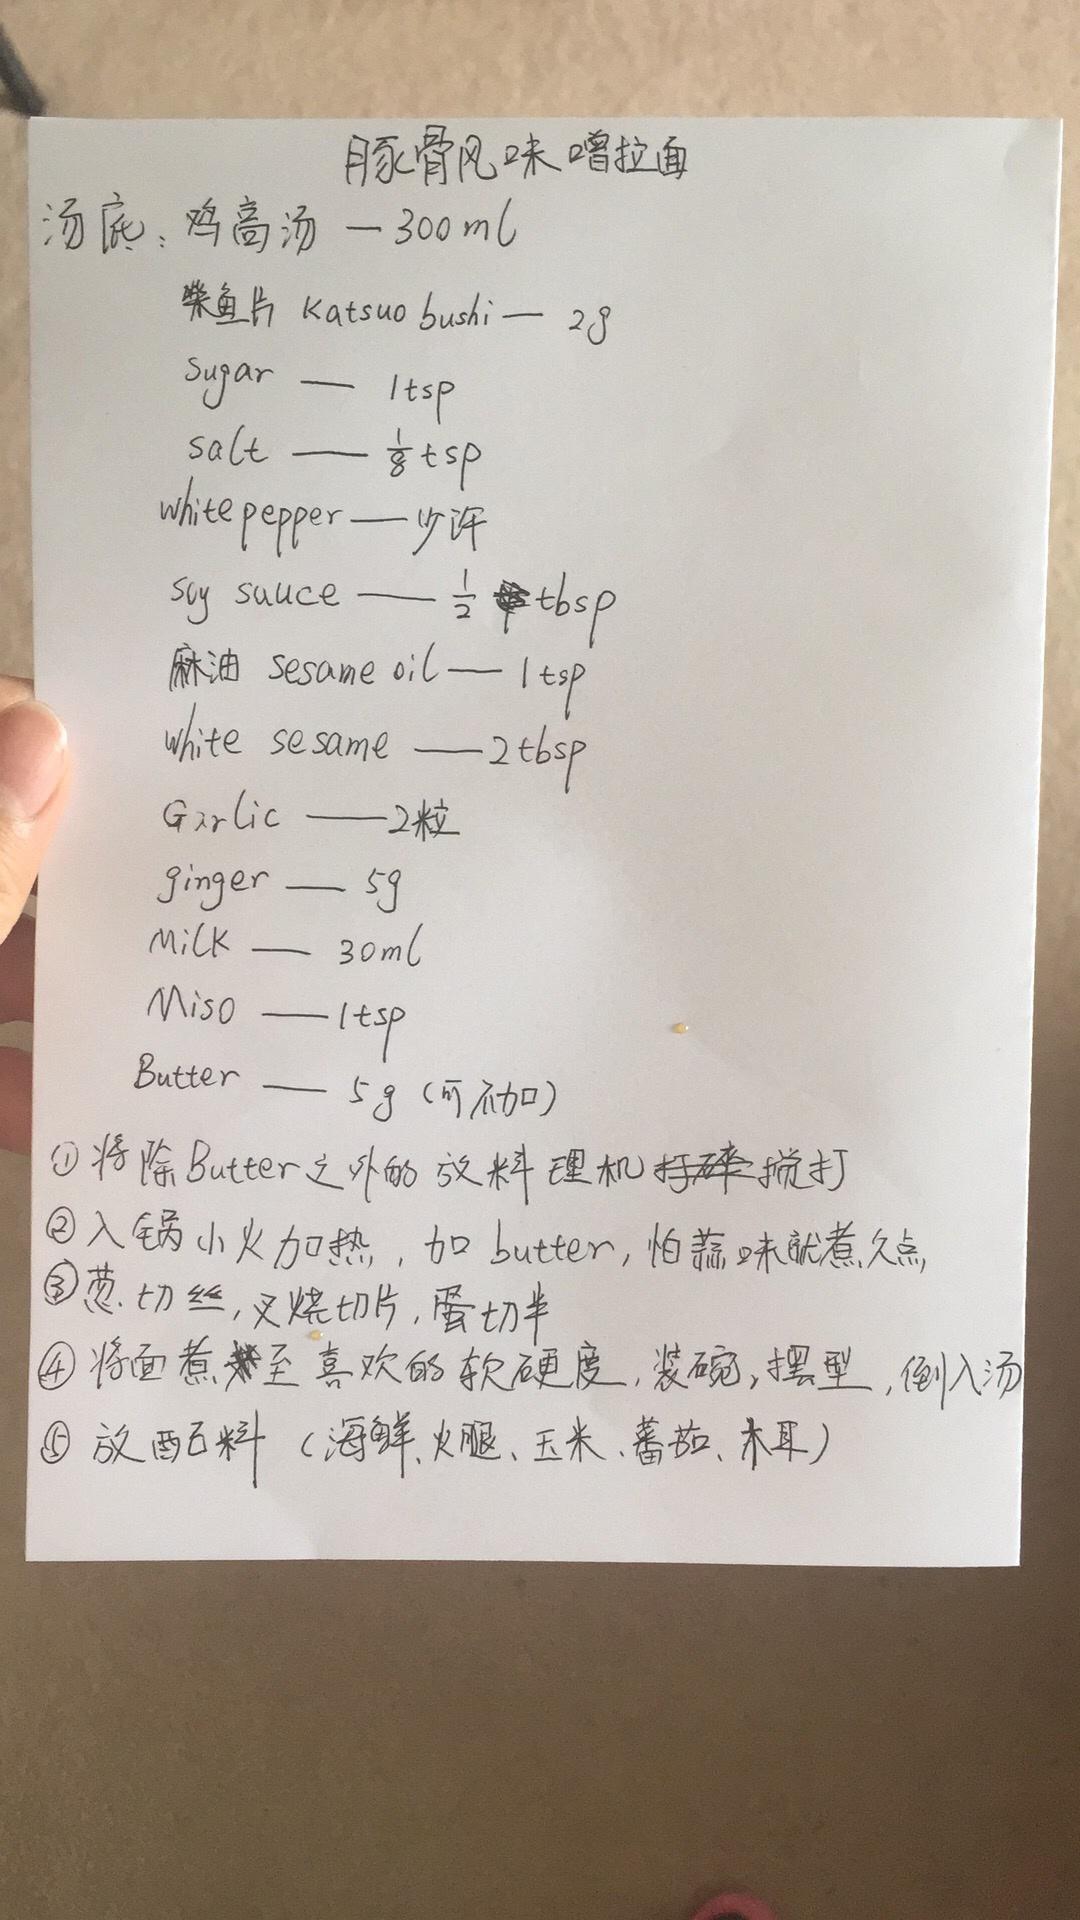 豚骨风味噌拉面
汤底：鸡高汤 — 300ml
柴鱼片 Katsuo bushi — 2g
sugar — 1tsp
salt — 1/8 tsp
white pepper — 少许
soy sauce — 1/2 tbsp
麻油 sesame oil — 1tsp
white sesame — 2tbsp
Garlic — 2粒
ginger — 5g
Milk — 30ml
Miso — 1tsp
Butter — 5g (可不加)
① 将除Butter之外的放料理机打碎搅打
② 入锅小火加热, 加butter, 怕蒜味就煮久点,
③ 葱切丝, 叉烧切片, 蛋切半
④ 将面煮至喜欢的软硬度, 装碗, 摆型, 倒入汤
⑤ 放配料 (海鲜、火腿、玉米、蕃茄、木耳)